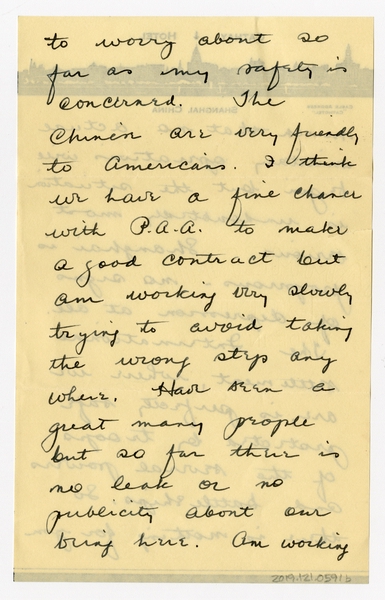 to worry about so
far as my safety is
concerned. The
Chinese are very friendly
to Americans. I think
we have a fine chance
with P.A.A. to make
a good contract but
am working very slowly
trying to avoid taking
the wrong steps any
where. Have seen a
great many people
but so far there is
no leak or no
publicity about our
being here. Am working
2019.121.059 b